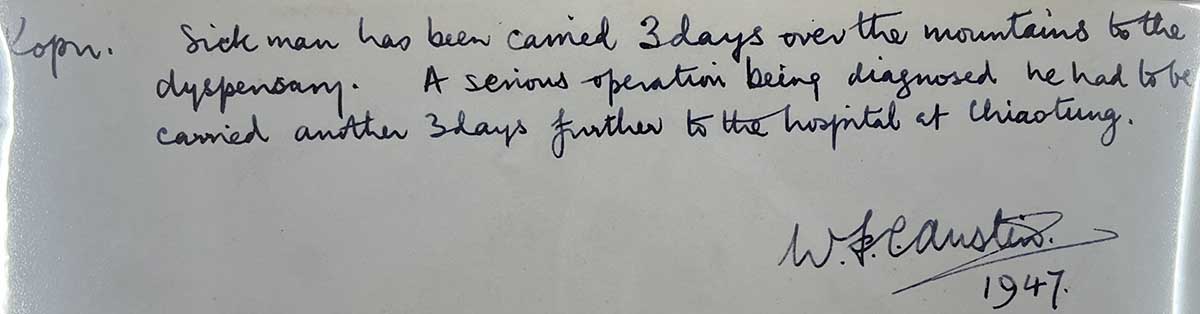 Kopu. Sick man has been carried 3 days over the mountains to the
dyspensary. A serious operation being diagnosed he had to be
carried another 3 days further to the hospital at Chiaotung.
W. F. C. Austin.
1947.